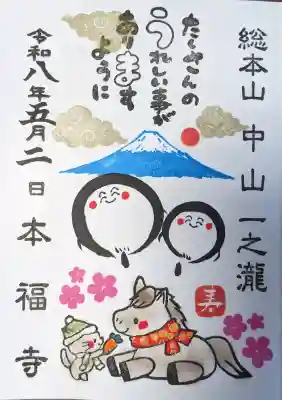 総本山 中山一之瀧
たくさんの
うれしい事が
あります
ように
令和八年五月二日 本福寺
寿